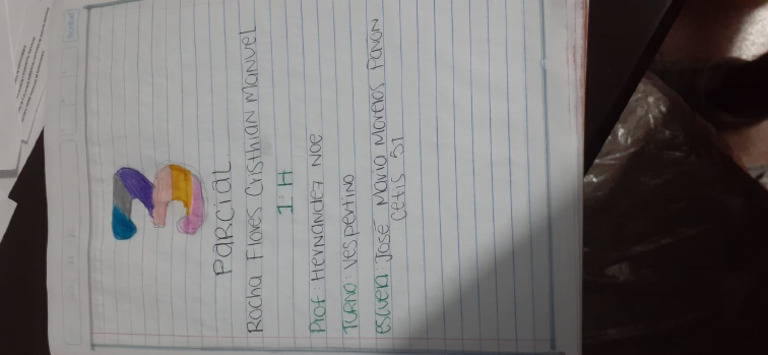 3
PARCIAL
Rocha Flores Cristhian Manuel
1-H
Prof: Hernandez Noe
TURNO: Vespertino
escuela: José Maria Morelos Pavon
Cetis 51